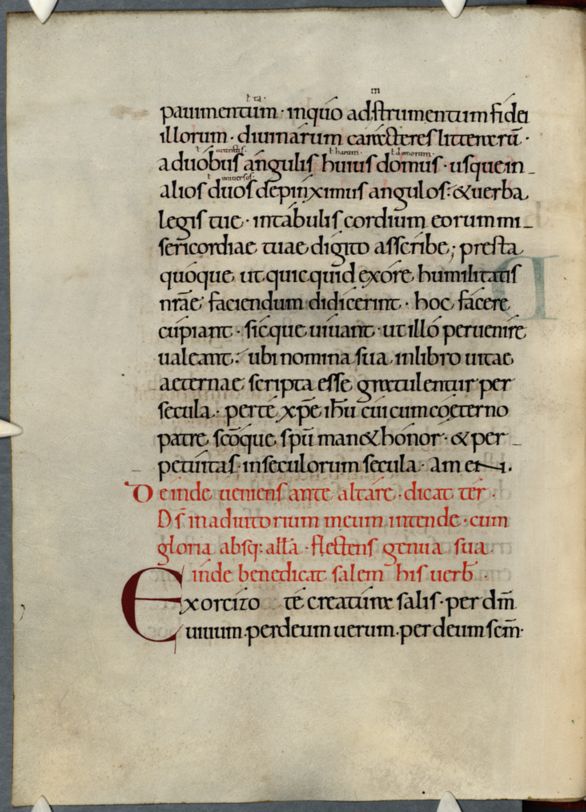 pauimentum · inquio adstrumentum fidei
illorum · diuinarum caracteres litterarū ·
a duobus angulis huius domus · usque in
alios duos depinximus angulos : & uerba
legis tue · in tabulis cordium eorum mi
sericordiae tuae digito asscribe ; presta
quoque, ut quicquid ex ore humilitatis
nr̄ae faciendum didicerint · hoc facere
cupiant · sicque uiuant · ut illo peruenire
ualeant · ubi nomina sua in libro uitae
aeternae scripta esse gratulentur per
secula · per te xp̄e ihū cui cum coeterno
patre, sc̄oque sp̄u man& honor · & per
petuitas · in seculorum secula · amen ·
Deinde ueniens ante altare · dicat ter ·
Ds̄ in adiutorium meum intende · cum
gloria absq: all̄a · flectens genua sua
inde benedicat salem his uerb̄ ·
Exorcizo te creatura salis · per dm̄
uiuum · per deum uerum · per deum sc̄m ·